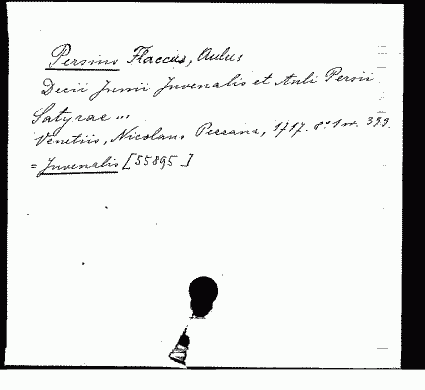 Persius Flaccus, Aulus
Decii Junii Juvenalis et Auli Persii
Satyrae ...
Venetiis, Nicolaus Pezzana, 1717. 8° 1 w. 399.
= Juvenalis [55895]